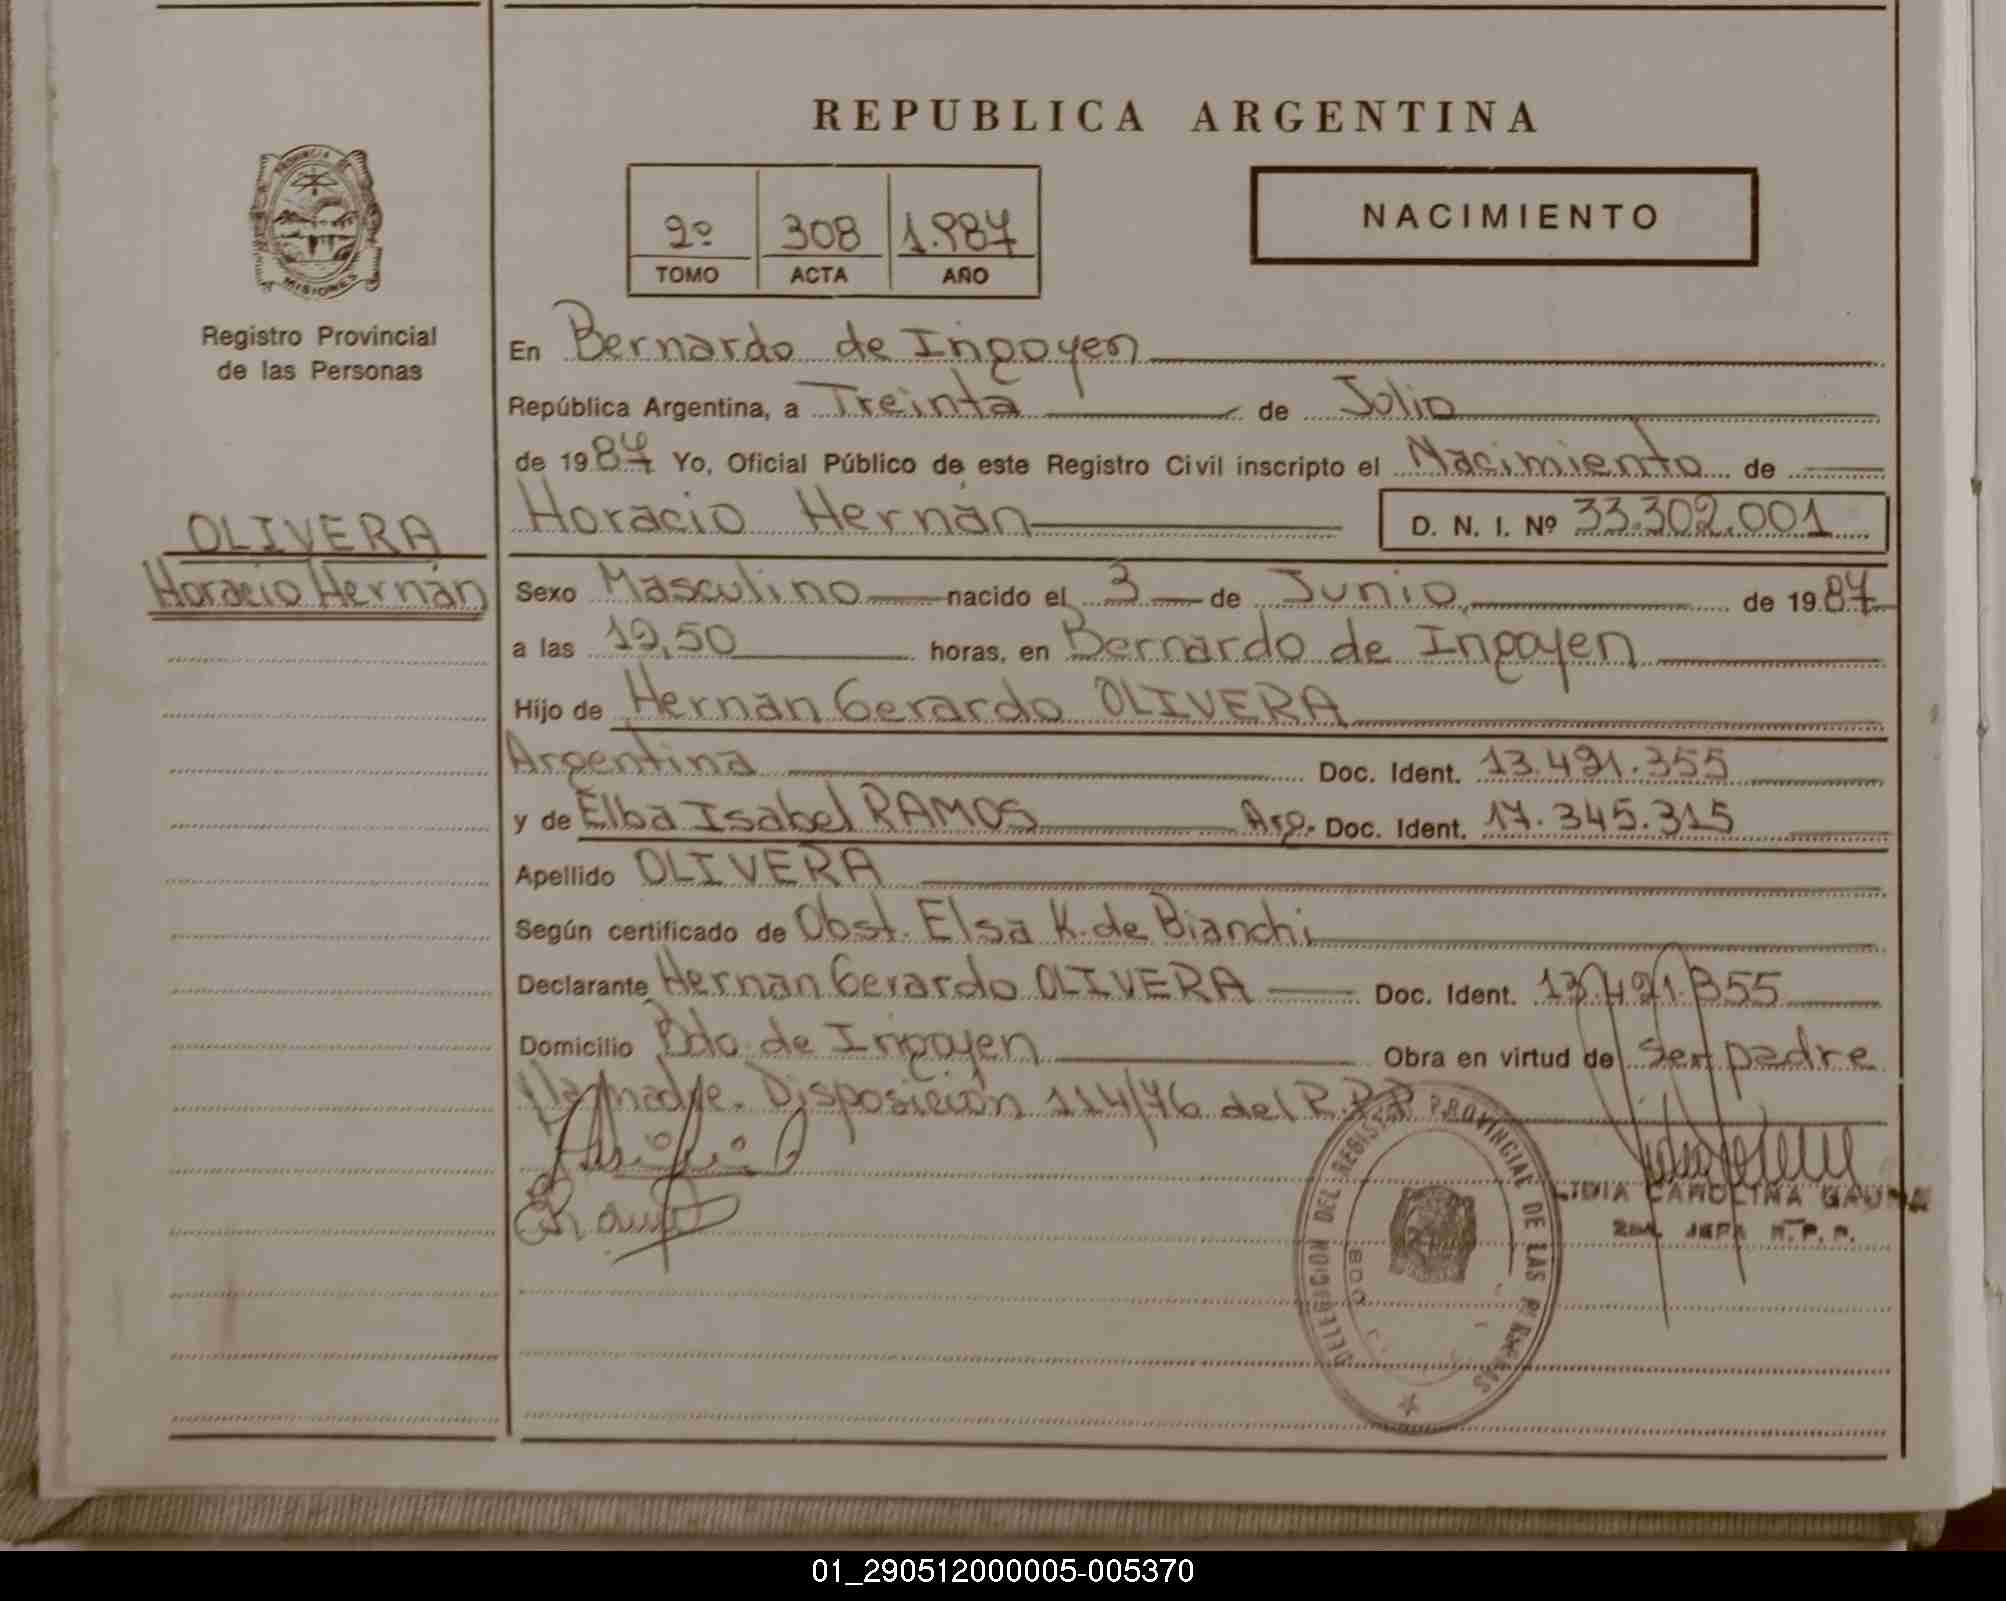 REPUBLICA ARGENTINA
PROVINCIA DE
MISIONES
Registro Provincial
de las Personas
2º 308 1.987
TOMO ACTA AÑO
NACIMIENTO
En Bernardo de Irigoyen
República Argentina, a Treinta de Julio
de 1987 Yo, Oficial Público de este Registro Civil inscripto el Nacimiento de
Horacio Hernán D. N. I. Nº 33.302.001
OLIVERA
Horacio Hernán
Sexo Masculino nacido el 3 de Junio de 1987
a las 19,50 horas, en Bernardo de Irigoyen
Hijo de Hernan Gerardo OLIVERA
Argentina Doc. Ident. 13.491.355
y de Elba Isabel RAMOS Arg. Doc. Ident. 17.345.315
Apellido OLIVERA
Según certificado de Obst. Elsa K. de Bianchi
Declarante Hernan Gerardo OLIVERA Doc. Ident. 13.491.355
Domicilio Bdo. de Irigoyen Obra en virtud de Ser padre
y la madre. Disposición 114/76 del R.P.P
DELEGACION DEL REGISTRO PROVINCIAL DE LAS PERSONAS
LIDIA CAROLINA GAUNA
JEFA R.P.P.
01_290512000005-005370